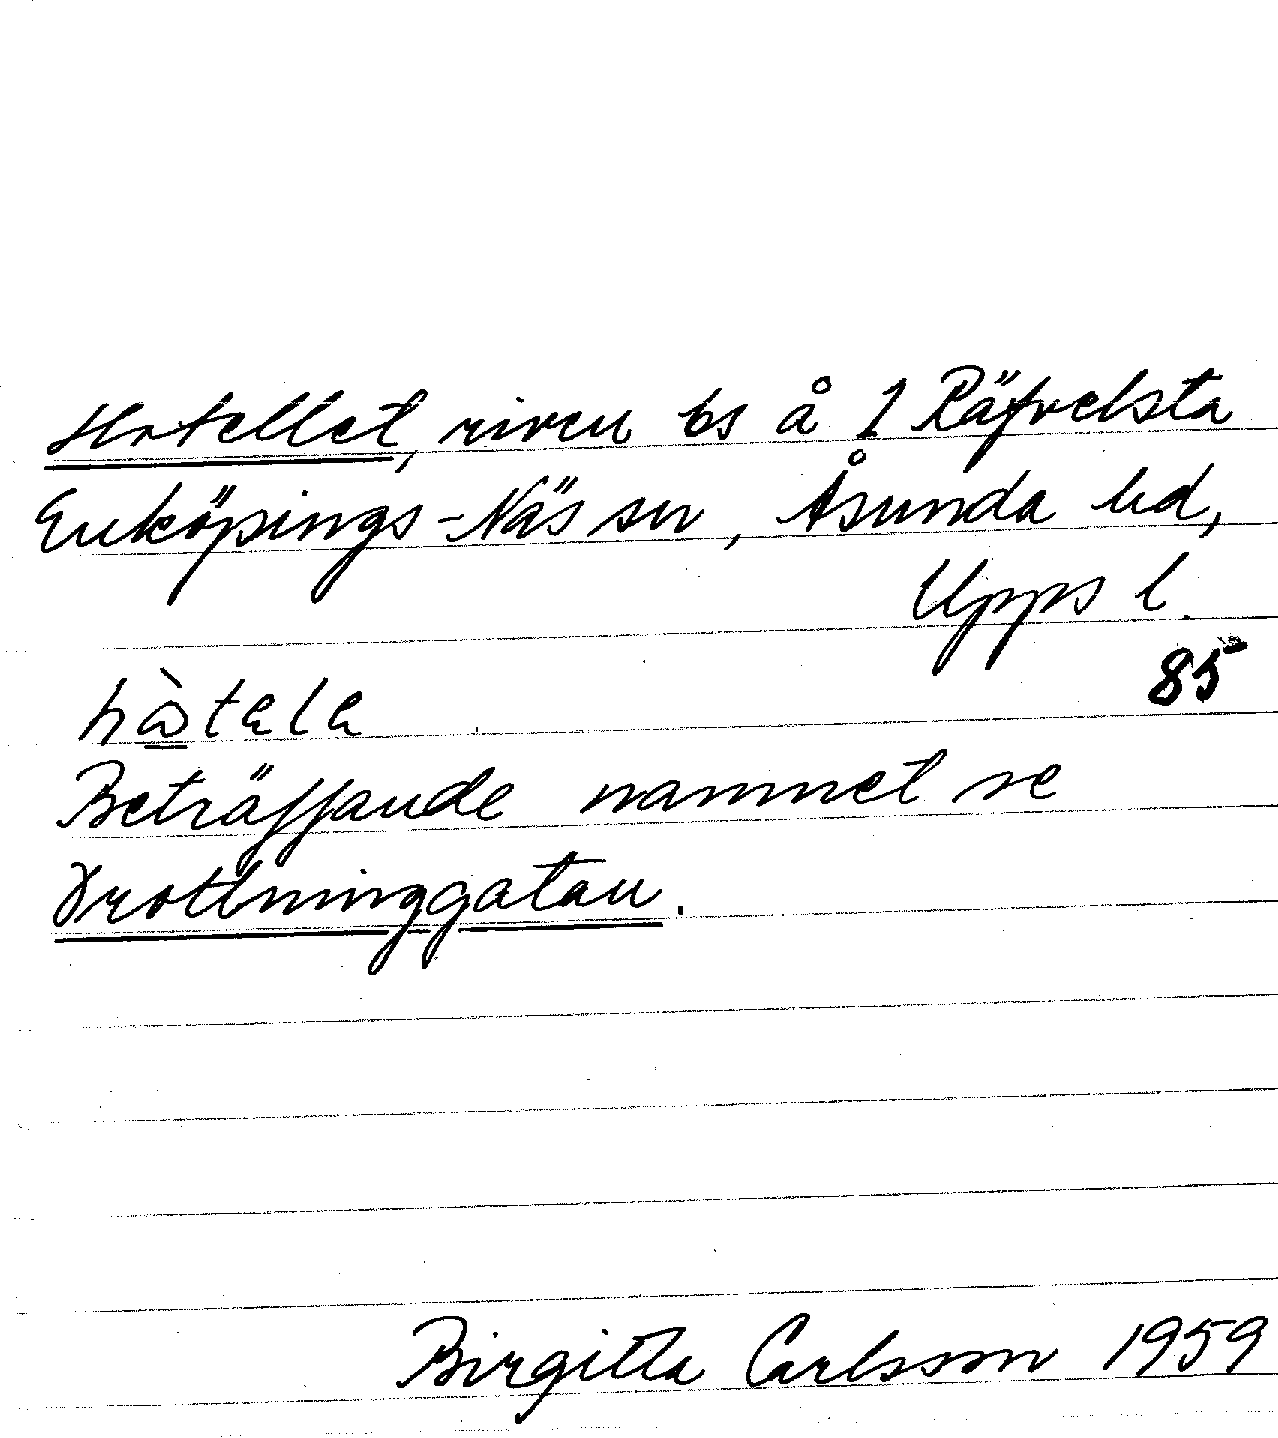 Hotellet, riven bs å 1 Räfvelsta
Enköpings-Näs sn, Åsunda hd,
Upps l.
85
hòtela
Beträffande namnet se
Drottninggatan.
Birgitta Carlsson 1959